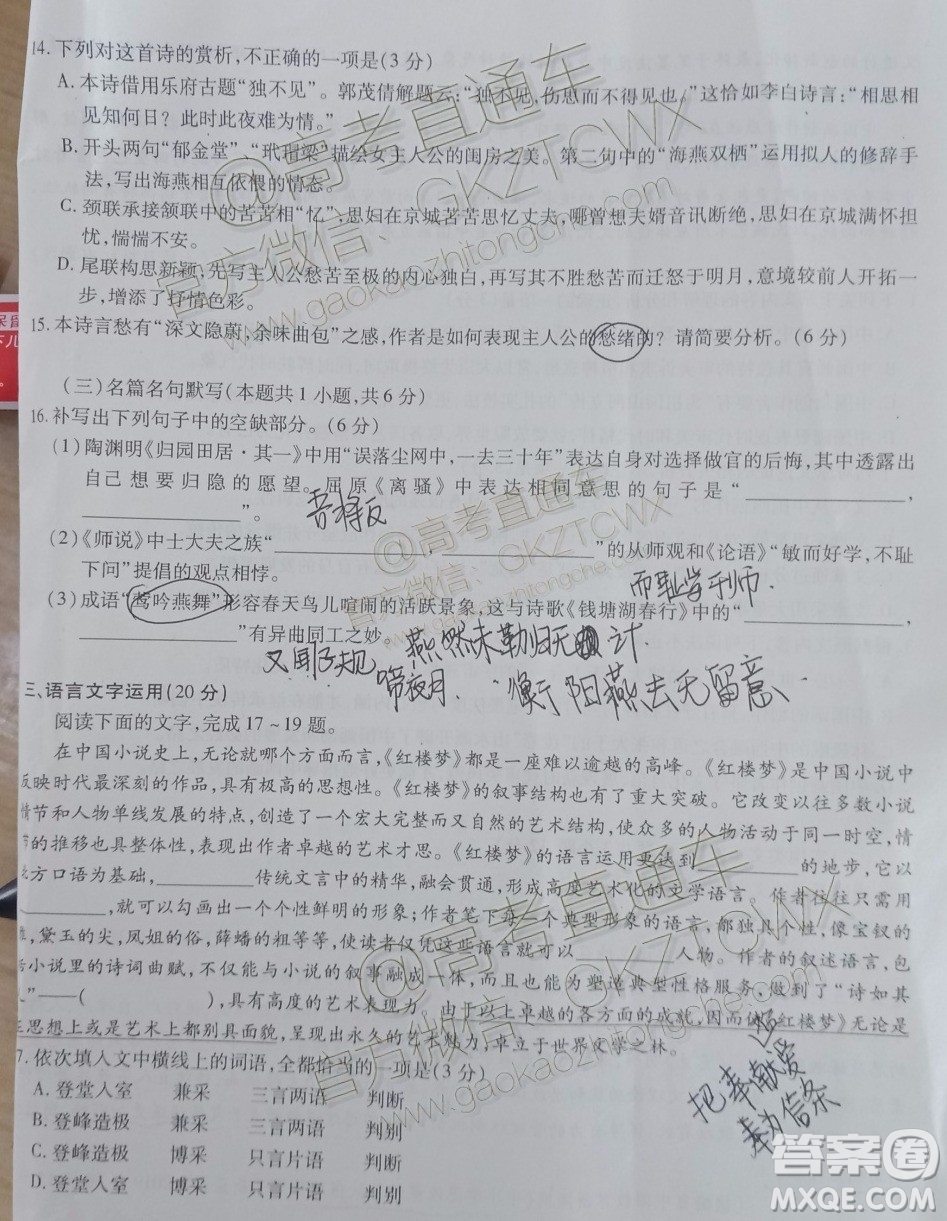 14.下列对这首诗的赏析,不正确的一项是(3分)
A.本诗借用乐府古题“独不见”。郭茂倩解题云:“独不见,伤思而不得见也。”这恰如李白诗言:“相思相
见知何日?此时此夜难为情。”
B.开头两句“郁金堂”“玳瑁梁”描绘女主人公的闺房之美。第二句中的“海燕双栖”运用拟人的修辞手
法,写出海燕相互依偎的情态。
C.颈联承接颔联中的苦苦相“忆”,思妇在京城苦苦思忆丈夫,哪曾想夫婿音讯断绝,思妇在京城满怀担
忧,惴惴不安。
D.尾联构思新颖,先写主人公愁苦至极的内心独白,再写其不胜愁苦而迁怒于明月,意境较前人更进一
步,增添了抒情色彩。
15.本诗言愁有“深文隐蔚,余味曲包”之感,作者是如何表现主人公的愁绪的?请简要分析。(6分)
(三)名篇名句默写(本题共1小题,共6分)
16.补写出下列句子中的空缺部分。(6分)
(1)陶渊明《归园田居·其一》中用“误落尘网中,一去三十年”表达自身对选择做官的后悔,其中透露出
自己想要归隐的愿望。屈原《离骚》中表达相同意思的句子是“____________,
____________”。
吾将反
(2)《师说》中士大夫之族“____________,____________”的从师观和《论语》“敏而好学,不耻
下问”提倡的观点相悖。
而耻学于师.
(3)成语“莺吟燕舞”形容春天鸟儿喧闹的活跃景象,这与诗歌《钱塘湖春行》中的“____________,
____________”有异曲同工之妙。
燕然未勒归无计
又闻子规
啼夜月. 衡阳燕去无留意.
三、语言文字运用(20分)
阅读下面的文字,完成17~19题。
在中国小说史上,无论就哪个方面而言,《红楼梦》都是一座难以逾越的高峰。《红楼梦》是中国小说中
反映时代最深刻的作品,具有极高的思想性。《红楼梦》的叙事结构也有了重大突破。它改变以往多数小说
情节和人物单线发展的特点,创造了一个宏大完整而又自然的艺术结构,使众多的人物活动于同一时空,情
节的推移也具整体性,表现出作者卓越的艺术才思。《红楼梦》的语言运用更达到________的地步,它以
北方口语为基础,________传统文言中的精华,融会贯通,形成高度艺术化的文学语言。作者往往只需用
________,就可以勾画出一个个性鲜明的形象;作者笔下每一个典型形象的语言,都独具个性,像宝钗的
,黛玉的尖,凤姐的俏,薛蟠的粗等等,使读者仅凭这些语言就可以________人物。作者的叙述语言
小说里的诗词曲赋,不仅能与小说的叙事融成一体,而且也能为塑造典型性格服务,做到了“诗如其
人”——( ),具有高度的艺术表现力。由于以上卓越的各方面的成就,因而使《红楼梦》无论是
在思想上或是艺术上都别具面貌,呈现出永久的艺术魅力,卓立于世界文学之林。
17.依次填入文中横线上的词语,全都恰当的一项是(3分)
A.登堂入室 兼采 三言两语 判断
B.登峰造极 兼采 三言两语 判别
C.登峰造极 博采 只言片语 判断
D.登堂入室 博采 只言片语 判别
把奉献爱
奉为信条
@高考直通车
官方微信:GKZTCWX
www.gaokaozhitongche.com
答案圈
MXQE.COM